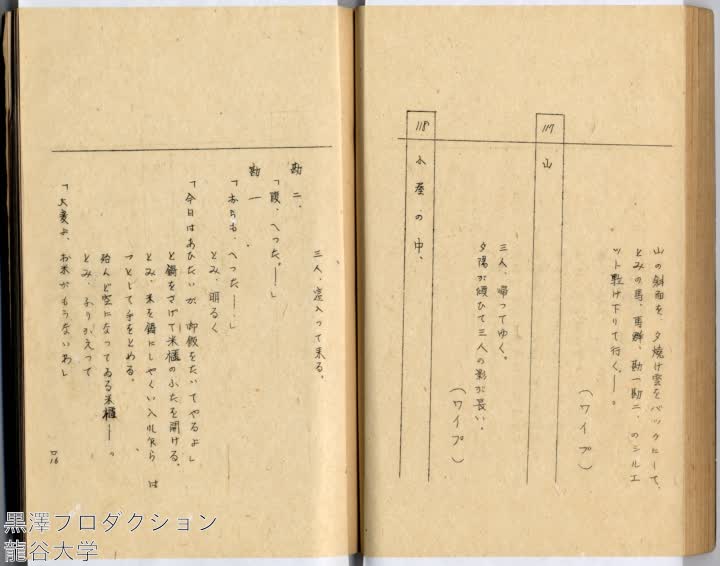 山の斜面を、夕焼け雲をバックにして、
とみの馬、馬群、勘一勘二、のシルエ
ット駈け下りて行く。——。
（ワイプ）
117 山
三人、帰ってゆく。
夕陽が傾いて三人の影が長い。
（ワイプ）
118 小屋の中、
三人、這入って来る。
勘二、
「腹、へった。——」
勘一、
「おらも、へった——。」
とみ、明るく
「今日はあひたいが 御飯をたいてやるよ」
と鍋をさげて米櫃のふたを開ける。
とみ、米を鍋にしゃくい入れ乍ら は
っとして手をとめる。
殆んど空になってゐる米櫃——。
とみ、ふりかえって
「大変よ、お米がもうないわ」
D16
黒澤プロダクション
龍谷大学